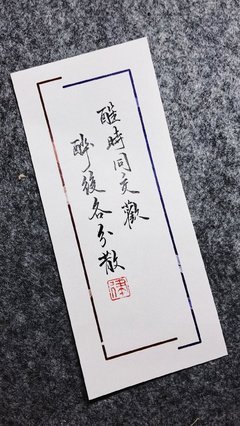 醒時同交歡
醉後各分散